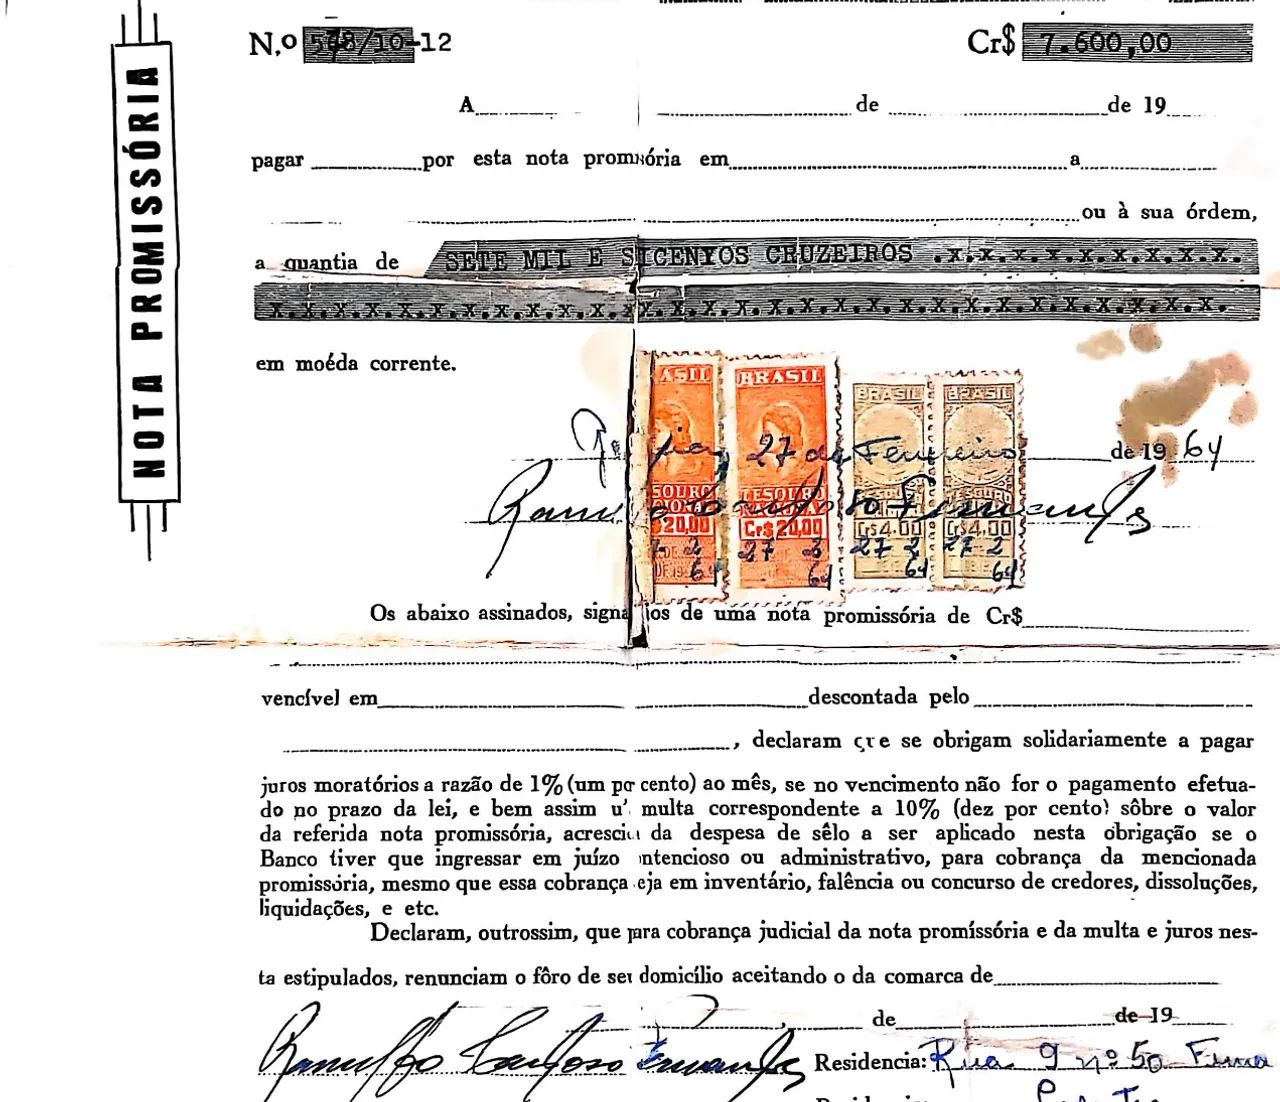 NOTA PROMISSÓRIA
N.º 578/10-12 Cr$ 7.600,00
A de de 19
pagar por esta nota promissória em a
ou à sua órdem,
a quantia de SETE MIL E SICENTOS CRUZEIROS .x.x.x.x.x.x.x.x.x.x.
x.x.x.x.x.x.x.x.x.x.x.x.x.x.x.x.x.x.x.x.x.x.x.x.x.x.x.x.x.x.
em moéda corrente.
ASIL BRASIL BRASIL BRASIL
27 de Fevereiro de 1964
Ranulfo Cardoso Fernandes
SOURO TESOURO TESOURO TESOURO
$20,00 Cr$20,00 Cr$4,00 Cr$4,00
27 2 27 2 27 2
64 64 64 64
Os abaixo assinados, signa ios de uma nota promissória de Cr$
vencível em descontada pelo
, declaram que se obrigam solidariamente a pagar
juros moratórios a razão de 1% (um por cento) ao mês, se no vencimento não for o pagamento efetua-
do no prazo da lei, e bem assim u multa correspondente a 10% (dez por cento) sôbre o valor
da referida nota promissória, acresci da despesa de sêlo a ser aplicado nesta obrigação se o
Banco tiver que ingressar em juízo ntencioso ou administrativo, para cobrança da mencionada
promissória, mesmo que essa cobrança eja em inventário, falência ou concurso de credores, dissoluções,
liquidações, e etc.
Declaram, outrossim, que para cobrança judicial da nota promíssória e da multa e juros nes-
ta estipulados, renunciam o fôro de seu domicílio aceitando o da comarca de
, de de 19
Ranulfo Cardoso Fernandes Residencia: Rua 9 nº 50